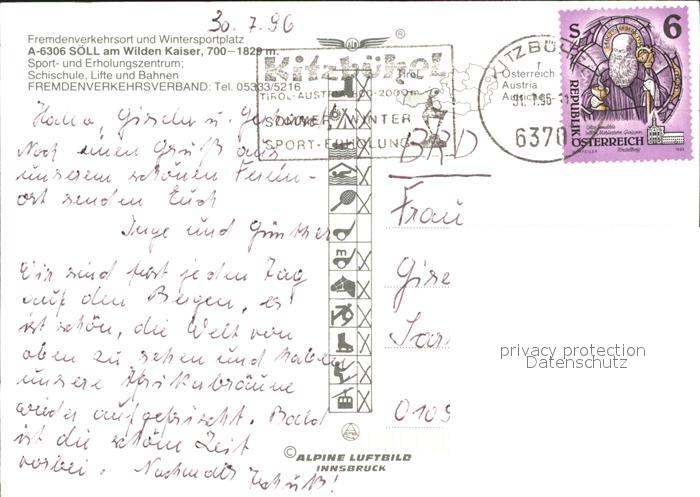 30.7.96
Fremdenverkehrsort und Wintersportplatz
A-6306 SÖLL am Wilden Kaiser, 700—1829 m.
Sport- und Erholungszentrum;
Schischule, Lifte und Bahnen
FREMDENVERKEHRSVERBAND: Tel. 05333/5216
Kitzbühel
Tirol
TIROL-AUSTRIA 800-2000m
SOMMER WINTER
SPORT-ERHOLUNG
KITZBÜ
Österreich
Austria
6370
S 6
REPUBLIK
ÖSTERREICH
Hallo, Gisela u.
Noch einen Gruß aus
unserem schönen Ferien-
ort senden Euch
Inge und Günther
Wir sind fast jeden Tag
auf den Bergen, es
ist schön, die Welt von
oben zu sehen und haben
unsere Afrikabräune
wieder aufgefrischt. Bald
ist die schöne Zeit
vorbei. Nochmals Tschüß!
BRD
Frau
Gise
0109
© ALPINE LUFTBILD
INNSBRUCK
privacy protection
Datenschutz